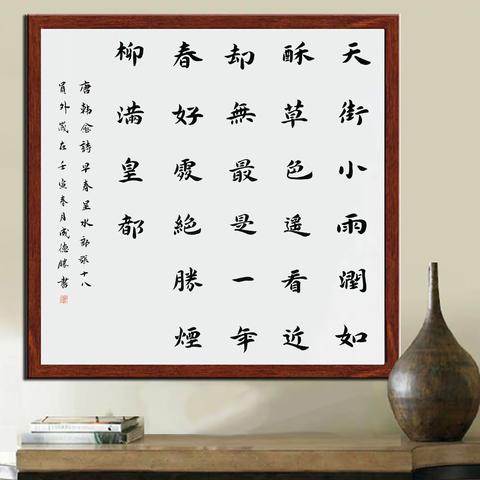 天街小雨潤如
酥草色遙看近
却無最是一年
春好處絕勝煙
柳滿皇都
唐韓愈詩早春呈水部張十八
員外歲在壬寅春月德勝書